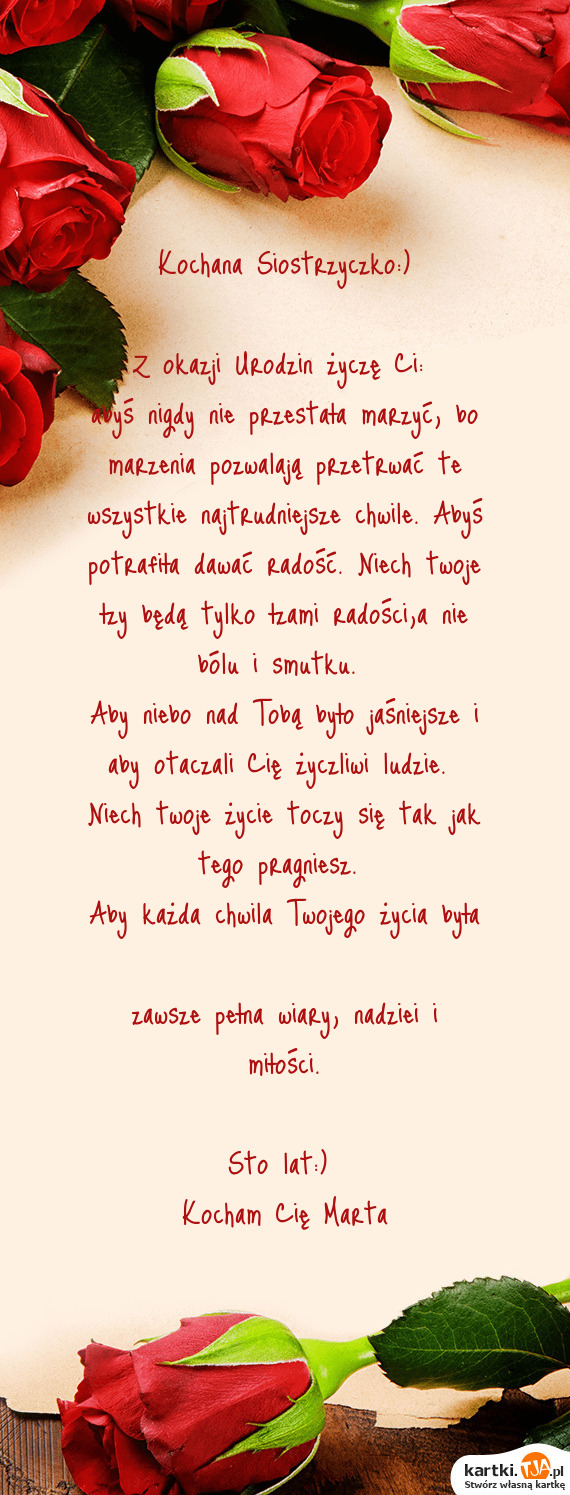 Kochana Siostrzyczko:)
Z okazji Urodzin życzę Ci:
abyś nigdy nie przestała marzyć, bo
marzenia pozwalają przetrwać te
wszystkie najtrudniejsze chwile. Abyś
potrafiła dawać radość. Niech twoje
łzy będą tylko łzami radości,a nie
bólu i smutku.
Aby niebo nad Tobą było jaśniejsze i
aby otaczali Cię życzliwi ludzie.
Niech twoje życie toczy się tak jak
tego pragniesz.
Aby każda chwila Twojego życia była
zawsze pełna wiary, nadziei i
miłości.
Sto lat:)
Kocham Cię Marta
kartki.TJA.pl
Stwórz własną kartkę